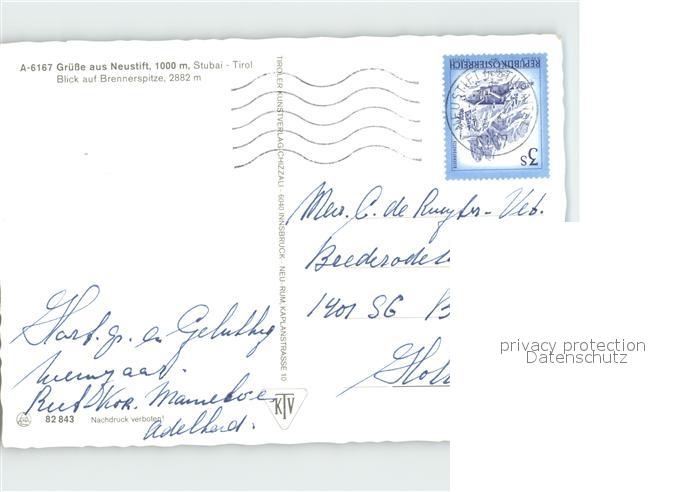 A-6167 Grüße aus Neustift, 1000 m, Stubai - Tirol
Blick auf Brennerspitze, 2882 m
TIROLER KUNSTVERLAG CHIZZALI · 6040 INNSBRUCK - NEU-RUM, KAPLANSTRASSE 10
REPUBLIK ÖSTERREICH
3 S
Mevr. C. de Ruyter-Ver.
Brederodest
1401 SG B
Hol
privacy protection
Datenschutz
Hart. gr. en Gelukkig
nieuwjaar.
Ruth Kor. Marcel
Adelheid.
82 843 Nachdruck verboten!
KTV